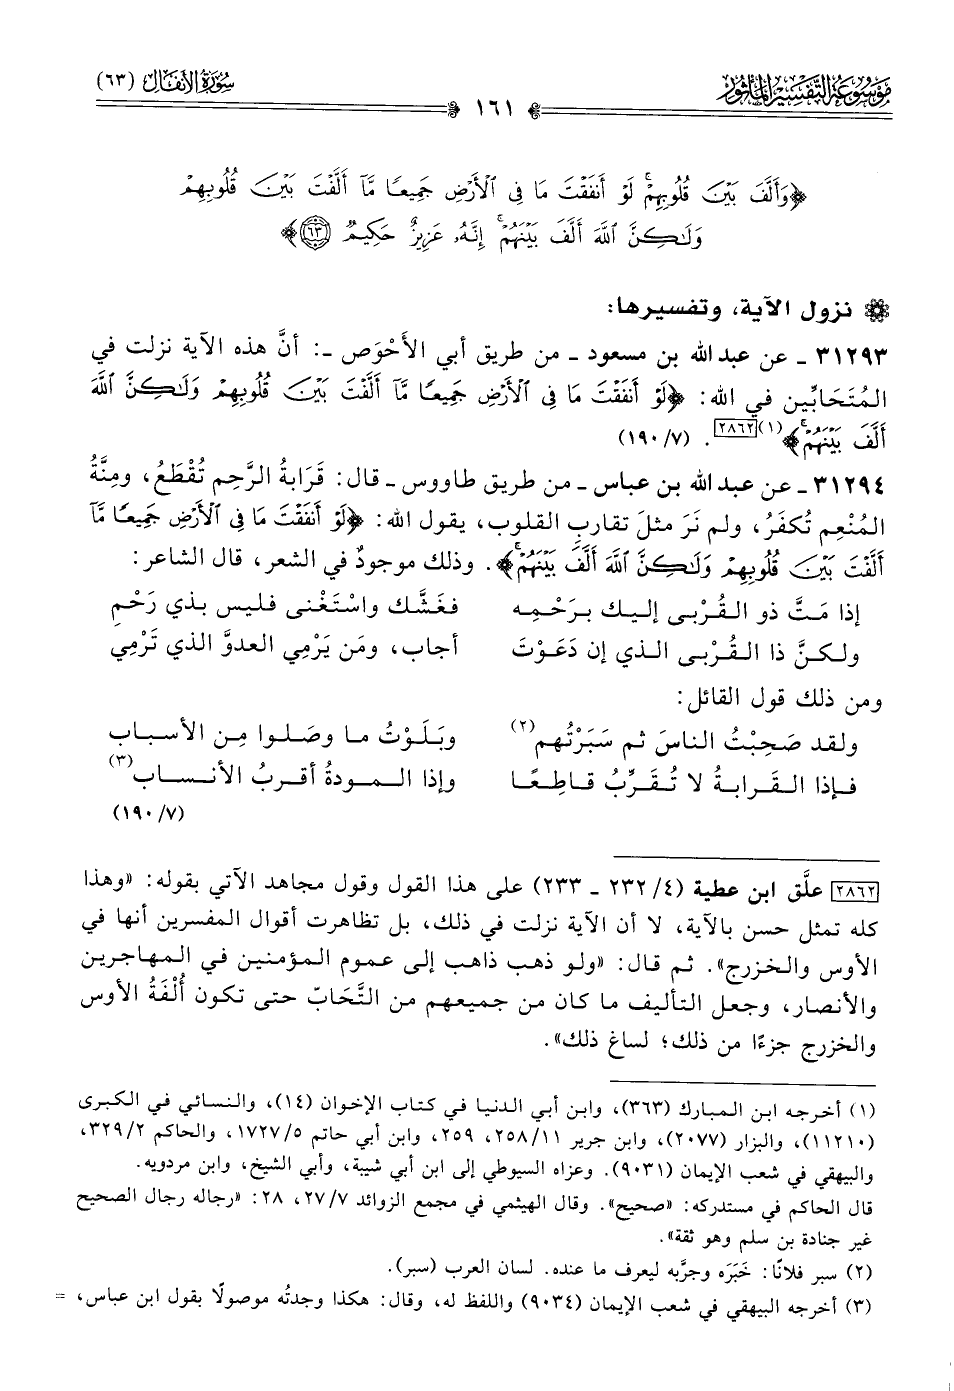 موسوعة التفسير المأثور
١٦١
سورة الأنفال (٦٣)
﴿وَأَلَّفَ بَيْنَ قُلُوبِهِمْ ۚ لَوْ أَنفَقْتَ مَا فِي ٱلْأَرْضِ جَمِيعًا مَّآ أَلَّفْتَ بَيْنَ قُلُوبِهِمْ
وَلَٰكِنَّ ٱللَّهَ أَلَّفَ بَيْنَهُمْ ۚ إِنَّهُۥ عَزِيزٌ حَكِيمٌ ٦٣﴾
نزول الآية، وتفسيرها:
٣١٢٩٣ ـ عن عبد الله بن مسعود ـ من طريق أبي الأَحْوَص ـ: أنَّ هذه الآية نزلت في
المُتَحَابِّين في الله: ﴿لَوْ أَنفَقْتَ مَا فِي ٱلْأَرْضِ جَمِيعًا مَّآ أَلَّفْتَ بَيْنَ قُلُوبِهِمْ وَلَٰكِنَّ ٱللَّهَ
أَلَّفَ بَيْنَهُمْ ۚ﴾(١) ٢٨٦٢. (٧/ ١٩٠)
٣١٢٩٤ ـ عن عبد الله بن عباس ـ من طريق طاووس ـ قال: قَرَابةُ الرَّحِم تُقْطَعُ، ومِنَّةُ
المُنْعِم تُكفَرُ، ولم نَرَ مثلَ تقاربِ القلوب، يقول الله: ﴿لَوْ أَنفَقْتَ مَا فِي ٱلْأَرْضِ جَمِيعًا مَّآ
أَلَّفْتَ بَيْنَ قُلُوبِهِمْ وَلَٰكِنَّ ٱللَّهَ أَلَّفَ بَيْنَهُمْ ۚ﴾. وذلك موجودٌ في الشعر، قال الشاعر:
إذا مَتَّ ذو القُرْبى إليك برَحْمِه فغَشَّك واسْتَغْنى فليس بذي رَحْمِ
ولكنَّ ذا القُرْبى الذي إن دَعَوْتَ أجاب، ومَن يَرْمِي العدوَّ الذي تَرْمِي
ومن ذلك قول القائل:
ولقد صَحِبْتُ الناسَ ثم سَبَرْتُهم(٢) وبَلَوْتُ ما وصَلوا مِن الأسباب
فإذا القَرابةُ لا تُقَرِّبُ قاطِعًا وإذا المودةُ أقربُ الأنساب(٣)
(٧/ ١٩٠)
٢٨٦٢ علَّق ابن عطية (٤/ ٢٣٢ ـ ٢٣٣) على هذا القول وقول مجاهد الآتي بقوله: «وهذا
كله تمثل حسن بالآية، لا أن الآية نزلت في ذلك، بل تظاهرت أقوال المفسرين أنها في
الأوس والخزرج». ثم قال: «ولو ذهب ذاهب إلى عموم المؤمنين في المهاجرين
والأنصار، وجعل التأليف ما كان من جميعهم من التَّحَابّ حتى تكون أُلْفَةُ الأوس
والخزرج جزءًا من ذلك؛ لساغ ذلك».
(١) أخرجه ابن المبارك (٣٦٣)، وابن أبي الدنيا في كتاب الإخوان (١٤)، والنسائي في الكبرى
(١١٢١٠)، والبزار (٢٠٧٧)، وابن جرير ١١/ ٢٥٨، ٢٥٩، وابن أبي حاتم ٥/ ١٧٢٧، والحاكم ٢/ ٣٢٩،
والبيهقي في شعب الإيمان (٩٠٣١). وعزاه السيوطي إلى ابن أبي شيبة، وأبي الشيخ، وابن مردويه.
قال الحاكم في مستدركه: «صحيح». وقال الهيثمي في مجمع الزوائد ٧/ ٢٧، ٢٨: «رجاله رجال الصحيح
غير جنادة بن سلم وهو ثقة».
(٢) سبر فلانًا: خَبَرَه وجرَّبه ليعرف ما عنده. لسان العرب (سبر).
(٣) أخرجه البيهقي في شعب الإيمان (٩٠٣٤) واللفظ له، وقال: هكذا وجدتُه موصولًا بقول ابن عباس، =